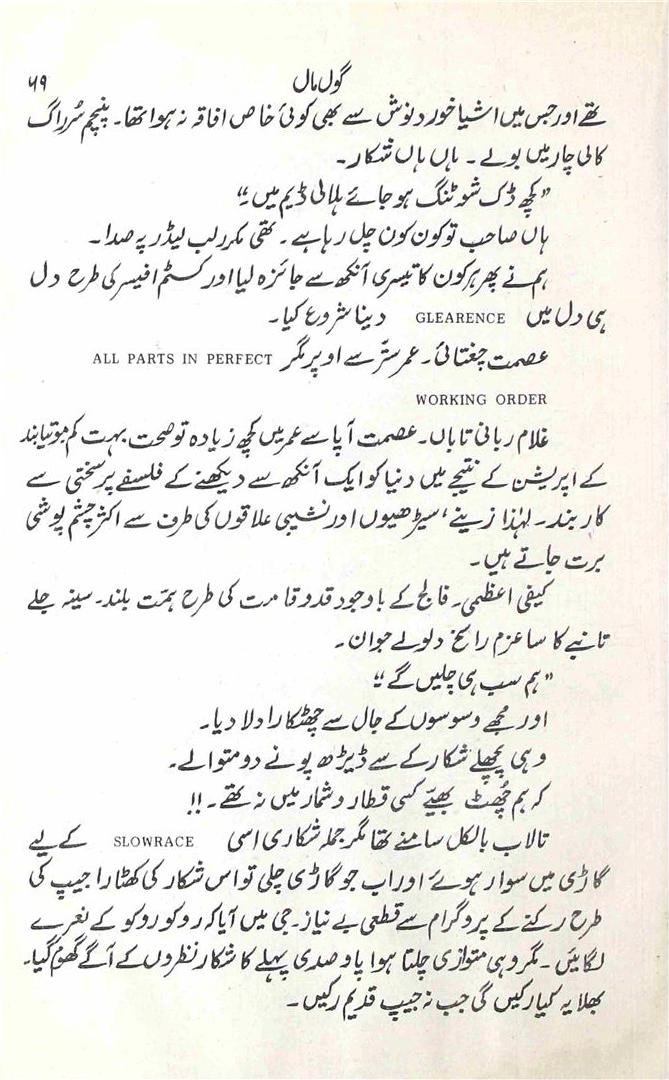 گول مال ۶۹
تھے اور جس میں اشیا خورد و نوش سے بھی کوئی خاص افاقہ نہ ہوا تھا۔ پنچم سُر راگ
کالی چار میں بولے۔ ہاں ہاں شکار۔
"کچھ ڈک شوٹنگ ہو جائے ہلالی ڈیم میں"
ہاں صاحب تو کون کون چل رہا ہے۔ تھی مکرر لب لیڈر پہ صدا۔
ہم نے پھر ہر کون کا تیسری آنکھ سے جائزہ لیا اور کسٹم افیسر کی طرح دل
ہی دل میں GLEARENCE دینا شروع کیا۔
عصمت چغتائی۔ عمر ستّر سے اوپر مگر ALL PARTS IN PERFECT
WORKING ORDER
غلام ربانی تاباں۔ عصمت آپا سے عمر میں کچھ زیادہ تو صحت بہت کم موتیابند
کے اپریشن کے نتیجے میں دنیا کو ایک آنکھ سے دیکھنے کے فلسفے پر سختی سے
کاربند۔ لہٰذا زینے، سیڑھیوں اور نشیبی علاقوں کی طرف سے اکثر چشم پوشی
برت جاتے ہیں۔
کیفی اعظمی۔ فالج کے باوجود قد و قامت کی طرح ہمّت بلند۔ سینہ جلے
تانبے کا سا عزم راسخ ولولے جوان۔
"ہم سب ہی چلیں گے"
اور مجھے وسوسوں کے جال سے چھٹکارا دلا دیا۔
وہی پچھلے شکار کے سے ڈیڑھ پونے دو متوالے۔
کہ ہم چُھٹ بھیّے کسی قطار و شمار میں نہ تھے۔!!
تالاب بالکل سامنے تھا مگر جملہ شکاری اسی SLOWRACE کے لیے
گاڑی میں سوار ہوئے اور اب جو گاڑی چلی تو اس شکار کی کھٹارا جیپ کی
طرح رکنے کے پروگرام سے قطعی بے نیاز۔ جی میں آیا کہ روکو روکو کے نعرے
لگائیں۔ مگر وہی متوازی چلتا ہوا پاؤ صدی پہلے کا شکار نظروں کے آگے گھوم گیا۔
بھلا یہ کیا رکیں گی جب نہ جیپ قدیم رکیں۔